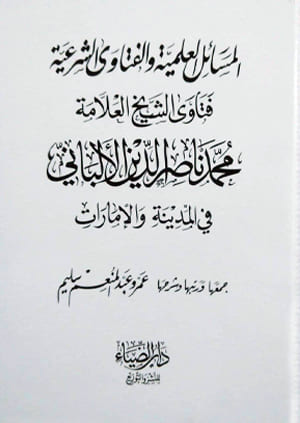 المسائل العلمية والفتاوى الشرعية
فتاوى الشيخ العلامة
محمد ناصر الدين الألباني
في المدينة والإمارات
جمعها ورتبها وشرحها عمرو عبد المنعم سليم
دار الضياء
للنشر والتوزيع